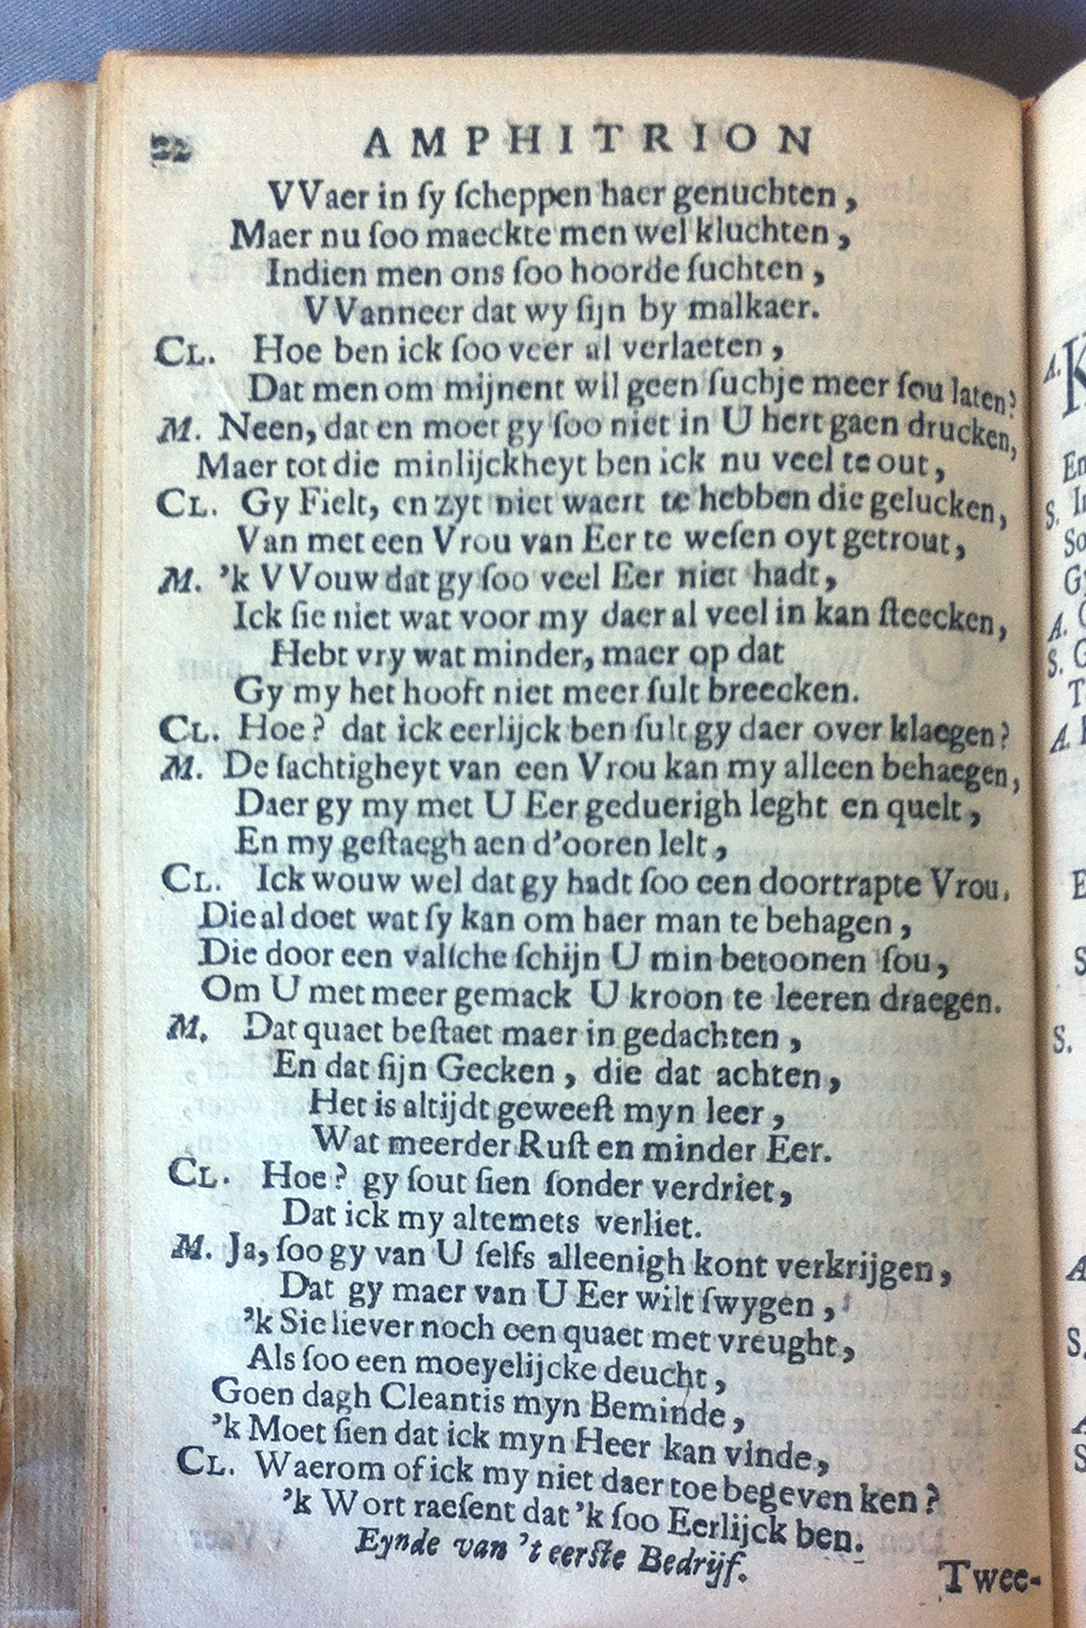 22 AMPHITRION
VVaer in ſy ſcheppen haer genuchten,
Maer nu ſoo maeckte men wel kluchten,
Indien men ons ſoo hoorde ſuchten,
VVanneer dat wy ſijn by malkaer.
CL. Hoe ben ick ſoo veer al verlaeten,
Dat men om mijnent wil geen ſuchje meer ſou laten?
M. Neen, dat en moet gy ſoo niet in U hert gaen drucken,
Maer tot die minlijckheyt ben ick nu veel te out,
CL. Gy Fielt, en zyt niet waert te hebben die gelucken,
Van met een Vrou van Eer te weſen oyt getrout,
M. 'k VVouw dat gy ſoo veel Eer niet hadt,
Ick ſie niet wat voor my daer al veel in kan ſteecken,
Hebt vry wat minder, maer op dat
Gy my het hooft niet meer ſult breecken.
CL. Hoe? dat ick eerlijck ben ſult gy daer over klaegen?
M. De ſachtigheyt van een Vrou kan my alleen behaegen,
Daer gy my met U Eer geduerigh leght en quelt,
En my geſtaegh aen d'ooren lelt,
CL. Ick wouw wel dat gy hadt ſoo een doortrapte Vrou,
Die al doet wat ſy kan om haer man te behagen,
Die door een valſche ſchijn U min betoonen ſou,
Om U met meer gemack U kroon te leeren draegen.
M. Dat quaet beſtaet maer in gedachten,
En dat ſijn Gecken, die dat achten,
Het is altijdt geweeſt myn leer,
Wat meerder Ruſt en minder Eer.
CL. Hoe? gy ſout ſien ſonder verdriet,
Dat ick my altemets verliet.
M. Ja, ſoo gy van U ſelfs alleenigh kont verkrijgen,
Dat gy maer van U Eer wilt ſwygen,
'k Sie liever noch een quaet met vreught,
Als ſoo een moeyelijcke deucht,
Goen dagh Cleantis myn Beminde,
'k Moet ſien dat ick myn Heer kan vinde,
CL. Waerom of ick my niet daer toe begeven ken?
'k Wort raeſent dat 'k ſoo Eerlijck ben.
Eynde van 't eerſte Bedrijf.
Twee-